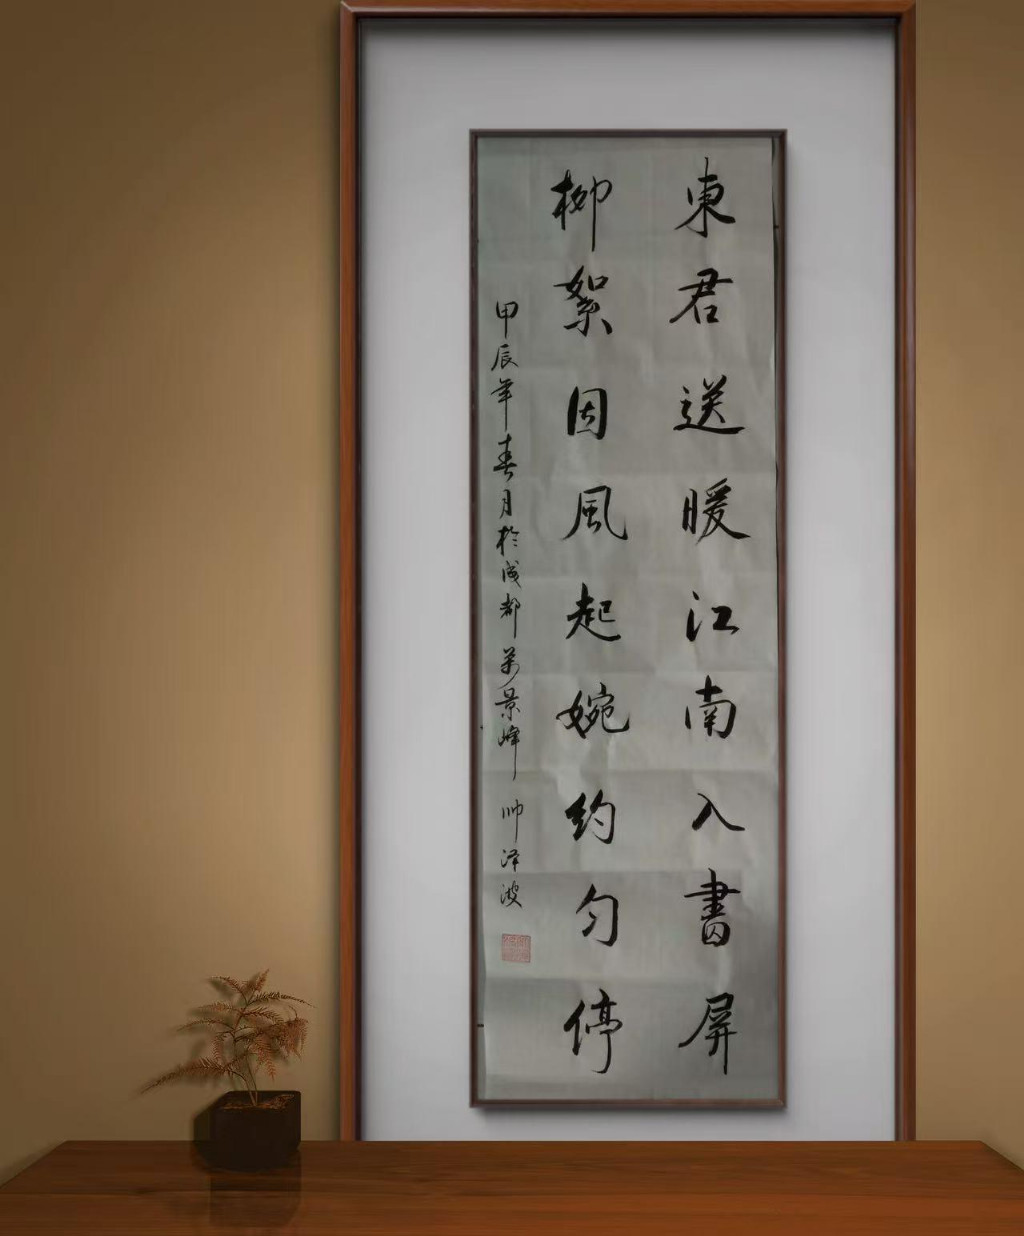 東君送暖江南入書屏
柳絮因風起婉約勻停
甲辰年春月於成都萬景峰 帅泽波